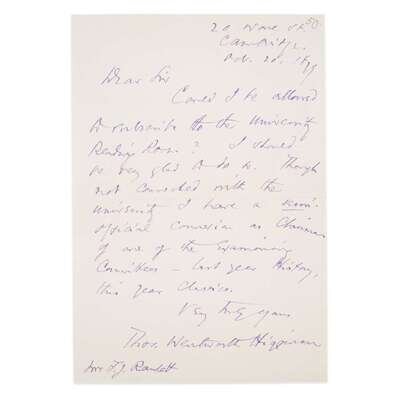 Cambridge,
Dear Sir
Could I be allowed
to subscribe to the University
Reading Room? I should
be very glad to do so. Though
not connected with the
University I have a semi-
official connexion as Chairman
of one of the Examining
Committees – last year History,
this year Classics.
Very truly yours
Thos. Wentworth Higginson